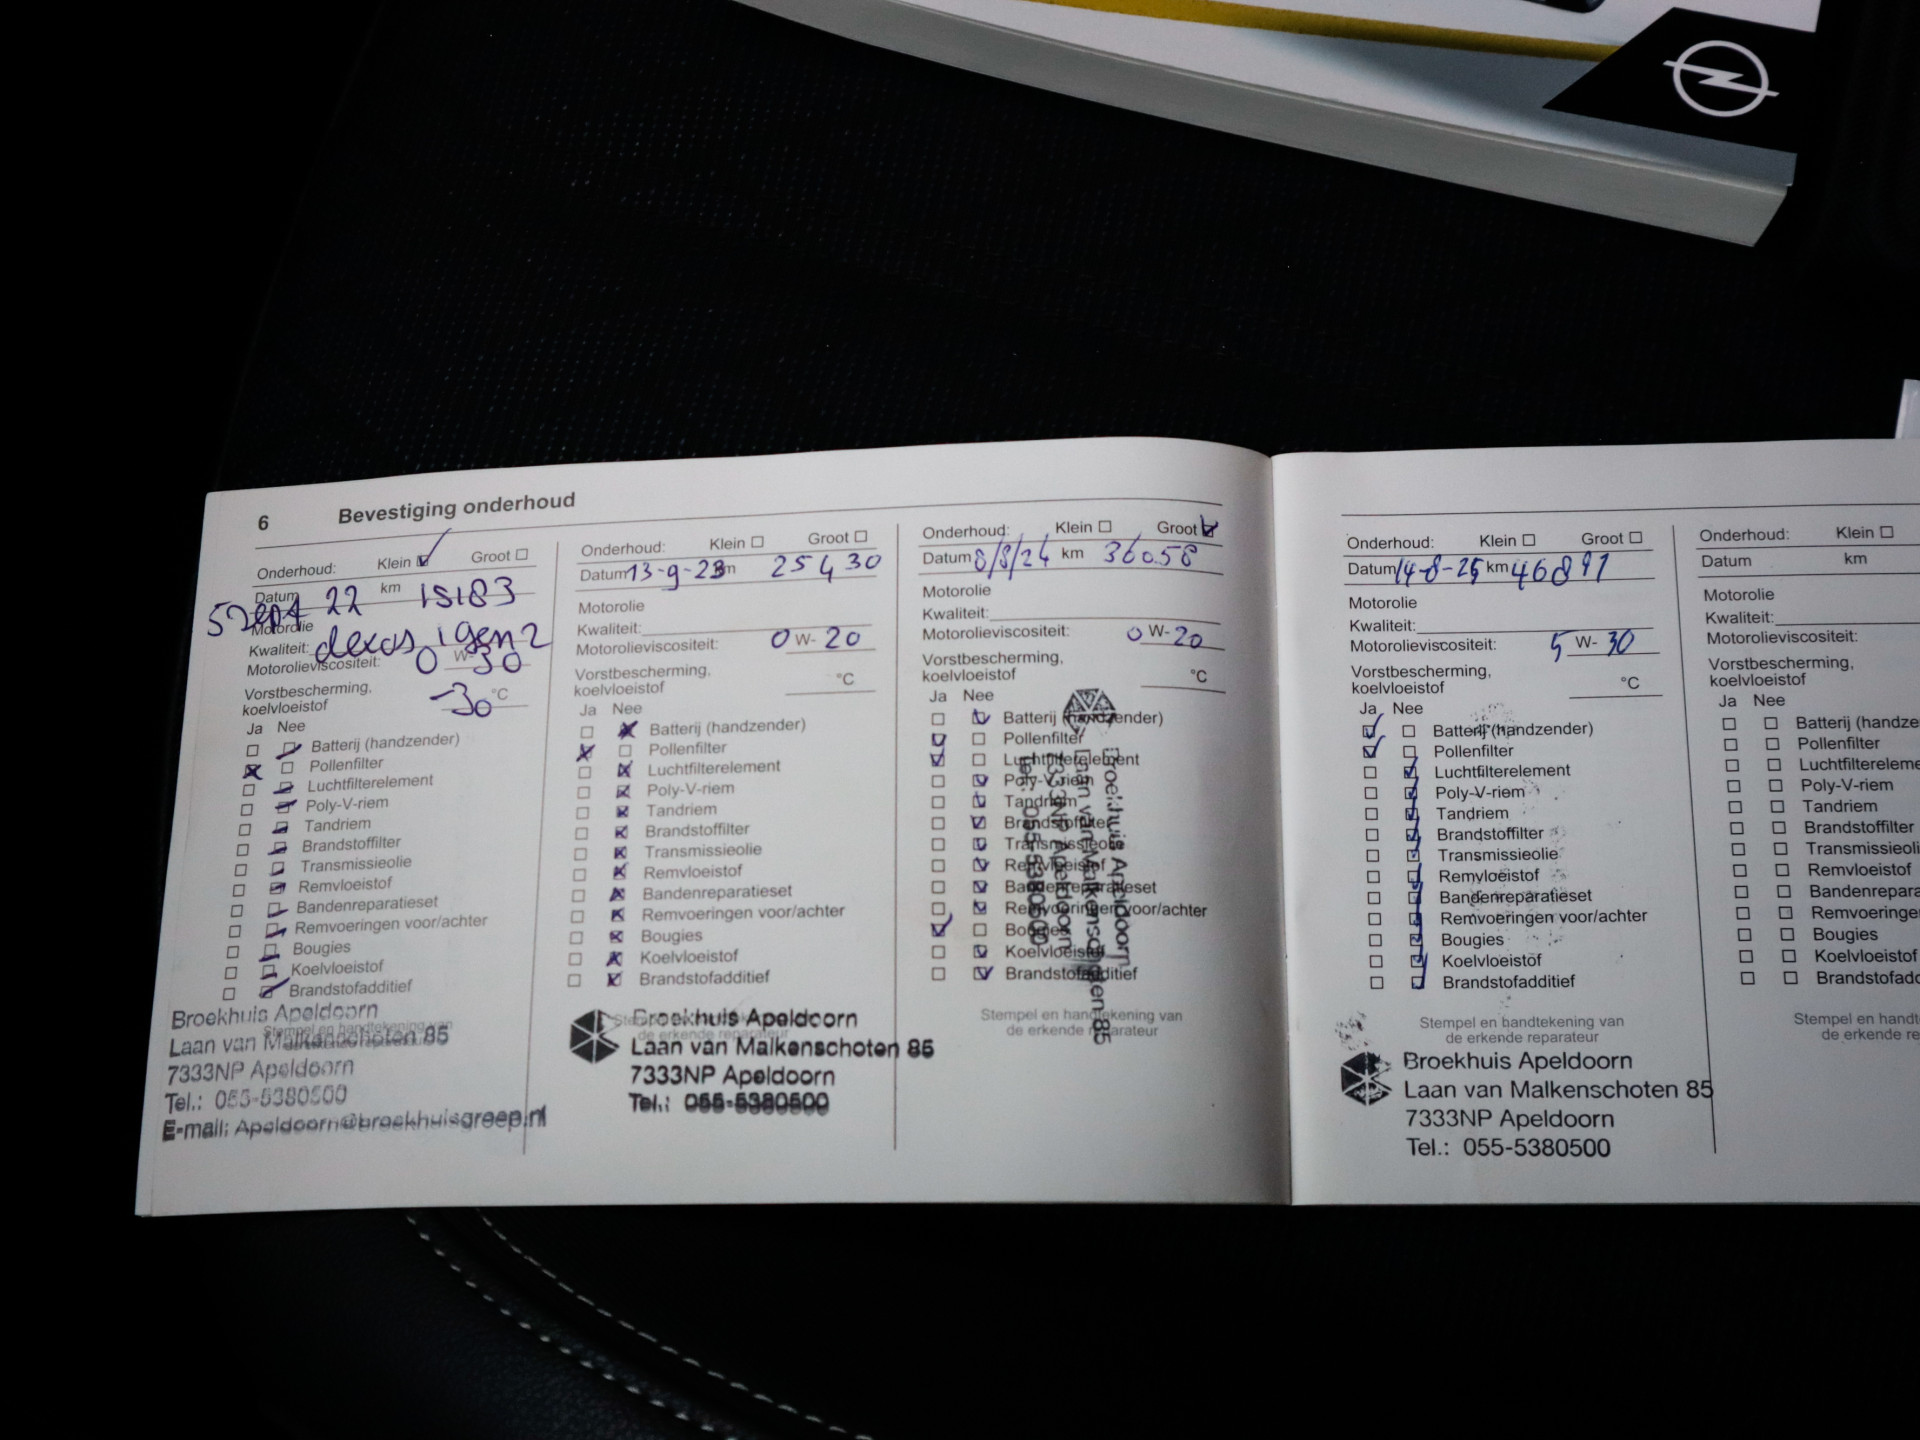 6 Bevestiging onderhoud
Onderhoud: Klein Groot
Datum 5 Sept 22 km 15183
Motorolie
Kwaliteit: dexos 1 gen2
Motorolieviscositeit: 0 W- 30
Vorstbescherming,
koelvloeistof -30 °C
Ja Nee
Batterij (handzender)
Pollenfilter
Luchtfilterelement
Poly-V-riem
Tandriem
Brandstoffilter
Transmissieolie
Remvloeistof
Bandenreparatieset
Remvoeringen voor/achter
Bougies
Koelvloeistof
Brandstofadditief
Stempel en handtekening van
de erkende reparateur
Broekhuis Apeldoorn
Laan van Malkenschoten 85
7333NP Apeldoorn
Tel.: 055-5380500
E-mail: Apeldoorn@broekhuisgroep.nl
Onderhoud: Klein Groot
Datum 13-9-23 km 25430
Motorolie
Kwaliteit:
Motorolieviscositeit: 0 W- 20
Vorstbescherming,
koelvloeistof °C
Ja Nee
Batterij (handzender)
Pollenfilter
Luchtfilterelement
Poly-V-riem
Tandriem
Brandstoffilter
Transmissieolie
Remvloeistof
Bandenreparatieset
Remvoeringen voor/achter
Bougies
Koelvloeistof
Brandstofadditief
Stempel en handtekening van
de erkende reparateur
Broekhuis Apeldoorn
Laan van Malkenschoten 85
7333NP Apeldoorn
Tel.: 055-5380500
Onderhoud: Klein Groot
Datum 8/8/24 km 36058
Motorolie
Kwaliteit:
Motorolieviscositeit: 0 W- 20
Vorstbescherming,
koelvloeistof °C
Ja Nee
Batterij (handzender)
Pollenfilter
Luchtfilterelement
Poly-V-riem
Tandriem
Brandstoffilter
Transmissieolie
Remvloeistof
Bandenreparatieset
Remvoeringen voor/achter
Bougies
Koelvloeistof
Brandstofadditief
Broekhuis Apeldoorn
Laan van Malkenschoten 85
7333NP Apeldoorn
Tel.: 055-5380500
Stempel en handtekening van
de erkende reparateur
Onderhoud: Klein Groot
Datum 14-8-25 km 46891
Motorolie
Kwaliteit:
Motorolieviscositeit: 5 W- 30
Vorstbescherming,
koelvloeistof °C
Ja Nee
Batterij (handzender)
Pollenfilter
Luchtfilterelement
Poly-V-riem
Tandriem
Brandstoffilter
Transmissieolie
Remvloeistof
Bandenreparatieset
Remvoeringen voor/achter
Bougies
Koelvloeistof
Brandstofadditief
Stempel en handtekening van
de erkende reparateur
Broekhuis Apeldoorn
Laan van Malkenschoten 85
7333NP Apeldoorn
Tel.: 055-5380500
Onderhoud: Klein
Datum km
Motorolie
Kwaliteit:
Motorolieviscositeit:
Vorstbescherming,
koelvloeistof
Ja Nee
Batterij (handze
Pollenfilter
Luchtfiltereleme
Poly-V-riem
Tandriem
Brandstoffilter
Transmissieoli
Remvloeistof
Bandenrepara
Remvoeringe
Bougies
Koelvloeistof
Brandstofadd
Stempel en handt
de erkende re